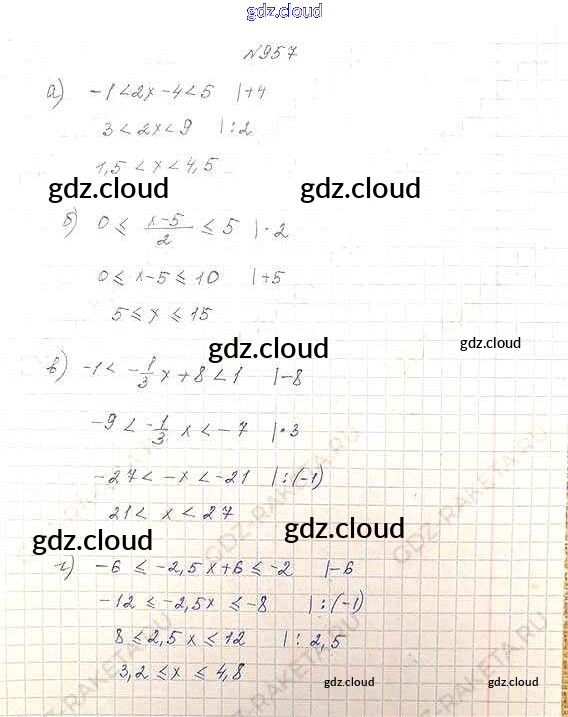 gdz.cloud
№957
а) -1<2x-4<5 |+4
3<2x<9 |:2
1,5<x<4,5
gdz.cloud gdz.cloud
б) 0≤ x-5/2 ≤5 |·2
0≤x-5≤10 |+5
5≤x≤15
gdz.cloud gdz.cloud
в) -1< -1/3 x+8<1 |-8
-9< -1/3 x<-7 |·3
-27<-x<-21 |:(-1)
21<x<27
GDZ-RAKETA.RU
GDZ-RAKETA.RU
gdz.cloud gdz.cloud
г) -6≤-2,5x+6≤-2 |-6
-12≤-2,5x≤-8 |:(-1)
8≤2,5x≤12 |:2,5
3,2≤x≤4,8
GDZ-RAKETA.RU
GDZ-RAKETA.RU
gdz.cloud gdz.cloud